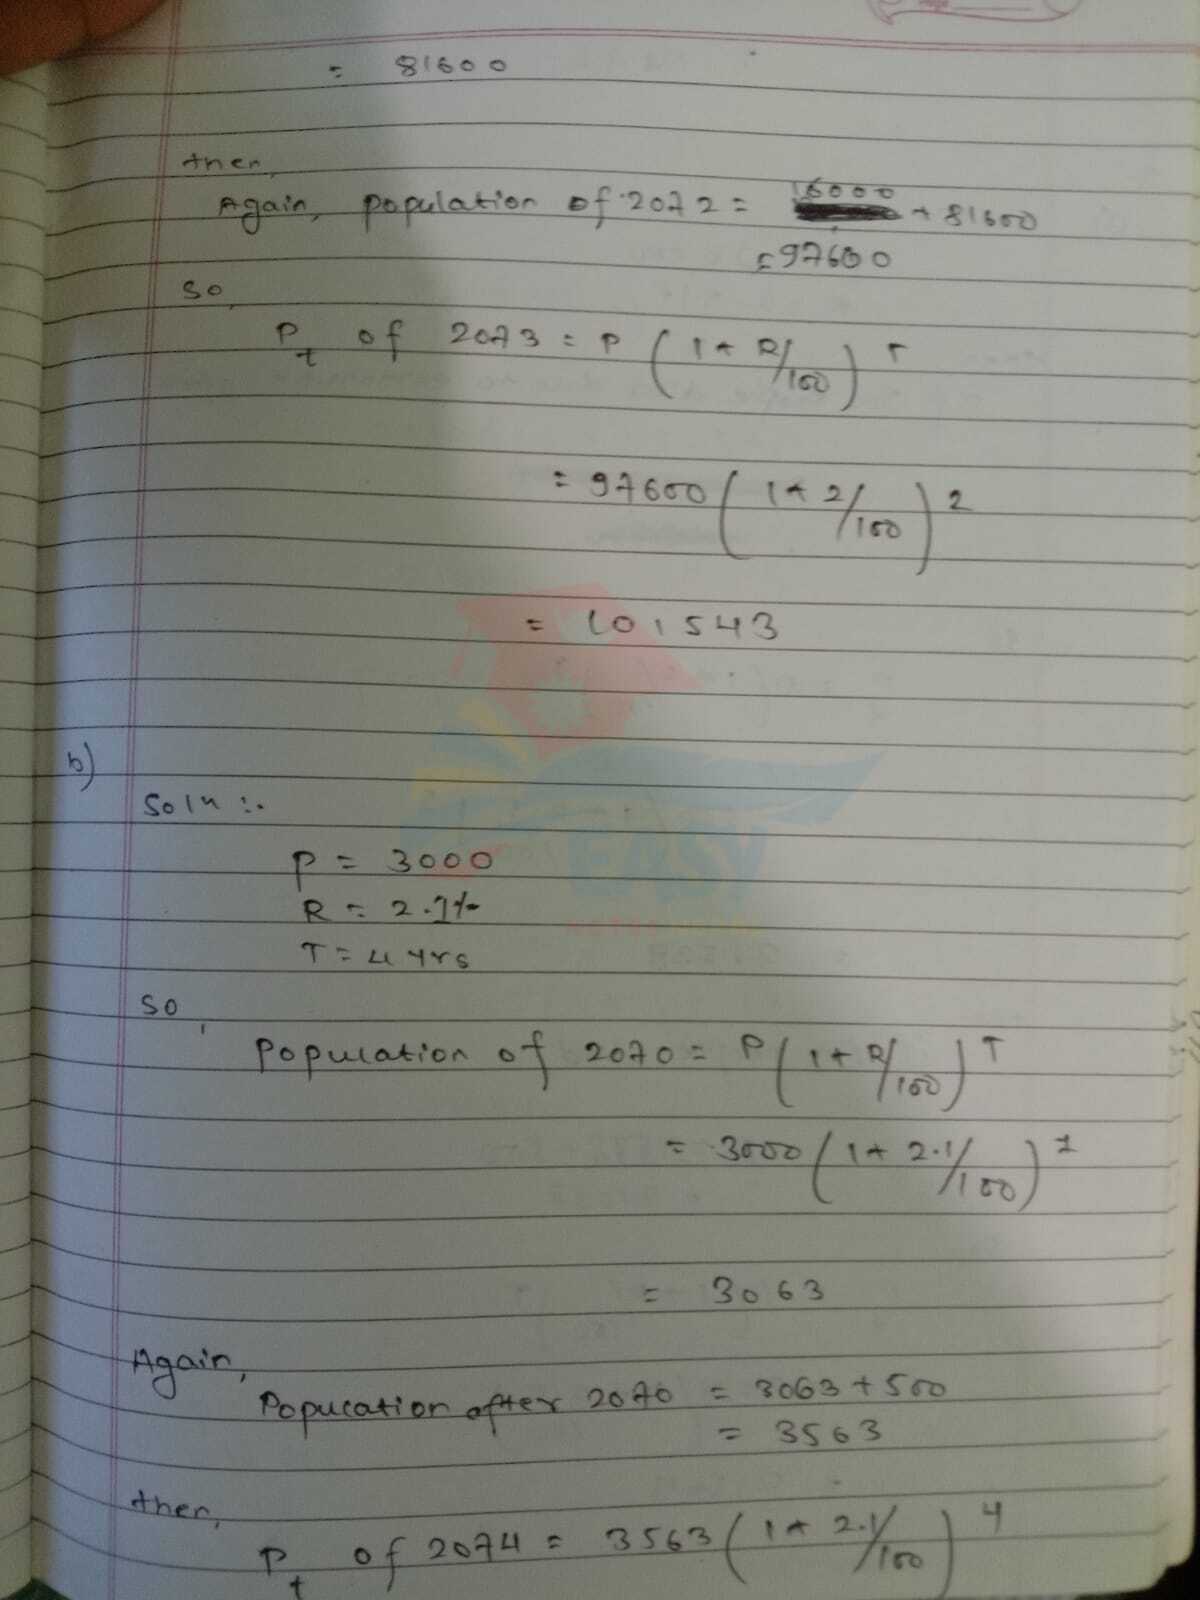 = 81600
then,
Again, population of 2072 = 16000 + 81600
= 97600
so,
Pt of 2073 = P (1+R/100)^T
= 97600 (1+2/100)^2
= 101543
b)
Soln :-
P = 3000
R = 2.1%
T = 4 yrs
so,
Population of 2070 = P(1+R/100)^T
= 3000 (1+2.1/100)^1
= 3063
Again,
Population after 2070 = 3063+500
= 3563
then,
Pt of 2074 = 3563 (1+2.1/100)^4
EASY